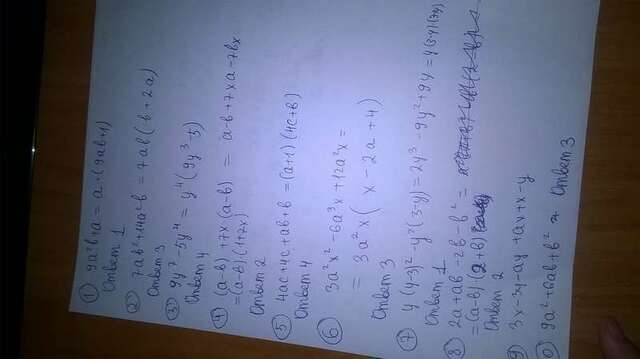 1) 9a²b+a = a·(9ab+1)
Ответ 1
2) 7ab²+14a²b = 7ab(b+2a)
Ответ 3
3) 9y⁷-5y⁴ = y⁴(9y³-5)
Ответ 4
4) (a-b)+7x·(a-b) = a-b+7xa-7bx
=(a-b)·(1+7x)
Ответ 2
5) 4ac+4c+ab+b=(a+1)(4c+b)
Ответ 4
6) 3a²x²-6a³x+12a²x=
= 3a²x(x-2a+4)
Ответ 3
7) y(y-3)²-y²(3-y)=2y³-9y²+9y=y(3-y)
Ответ 1
8) 2a+ab-2b-b²=
=(a-b)·(2+b)
Ответ 2
9) 3x-3y-ay+ax+x-y
0) 9a²+6ab+b² Ответ 3